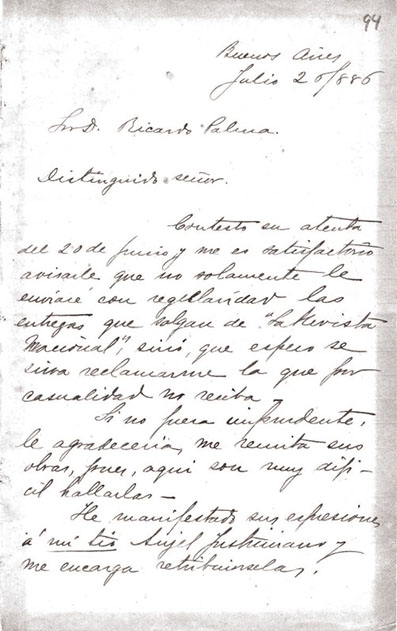 94
Buenos Aires
Julio 26/886
Sr. D. Ricardo Palma.
Distinguido señor.
Contesto su atenta
del 20 de Junio y me es satisfactorio
avisarle que no solamente le
enviaré con regularidad las
entregas que salgan de "La Revista
Nacional", sinó, que espero se
sirva reclamarme la que por
casualidad no reciba —
Si no fuera imprudente,
le agradeceria, me remita sus
obras, pues, aqui son muy difi-
cil hallarlas —
He manifestado sus espresiones
á mi tio Angel Justiniano y
me encarga retribuirselas.